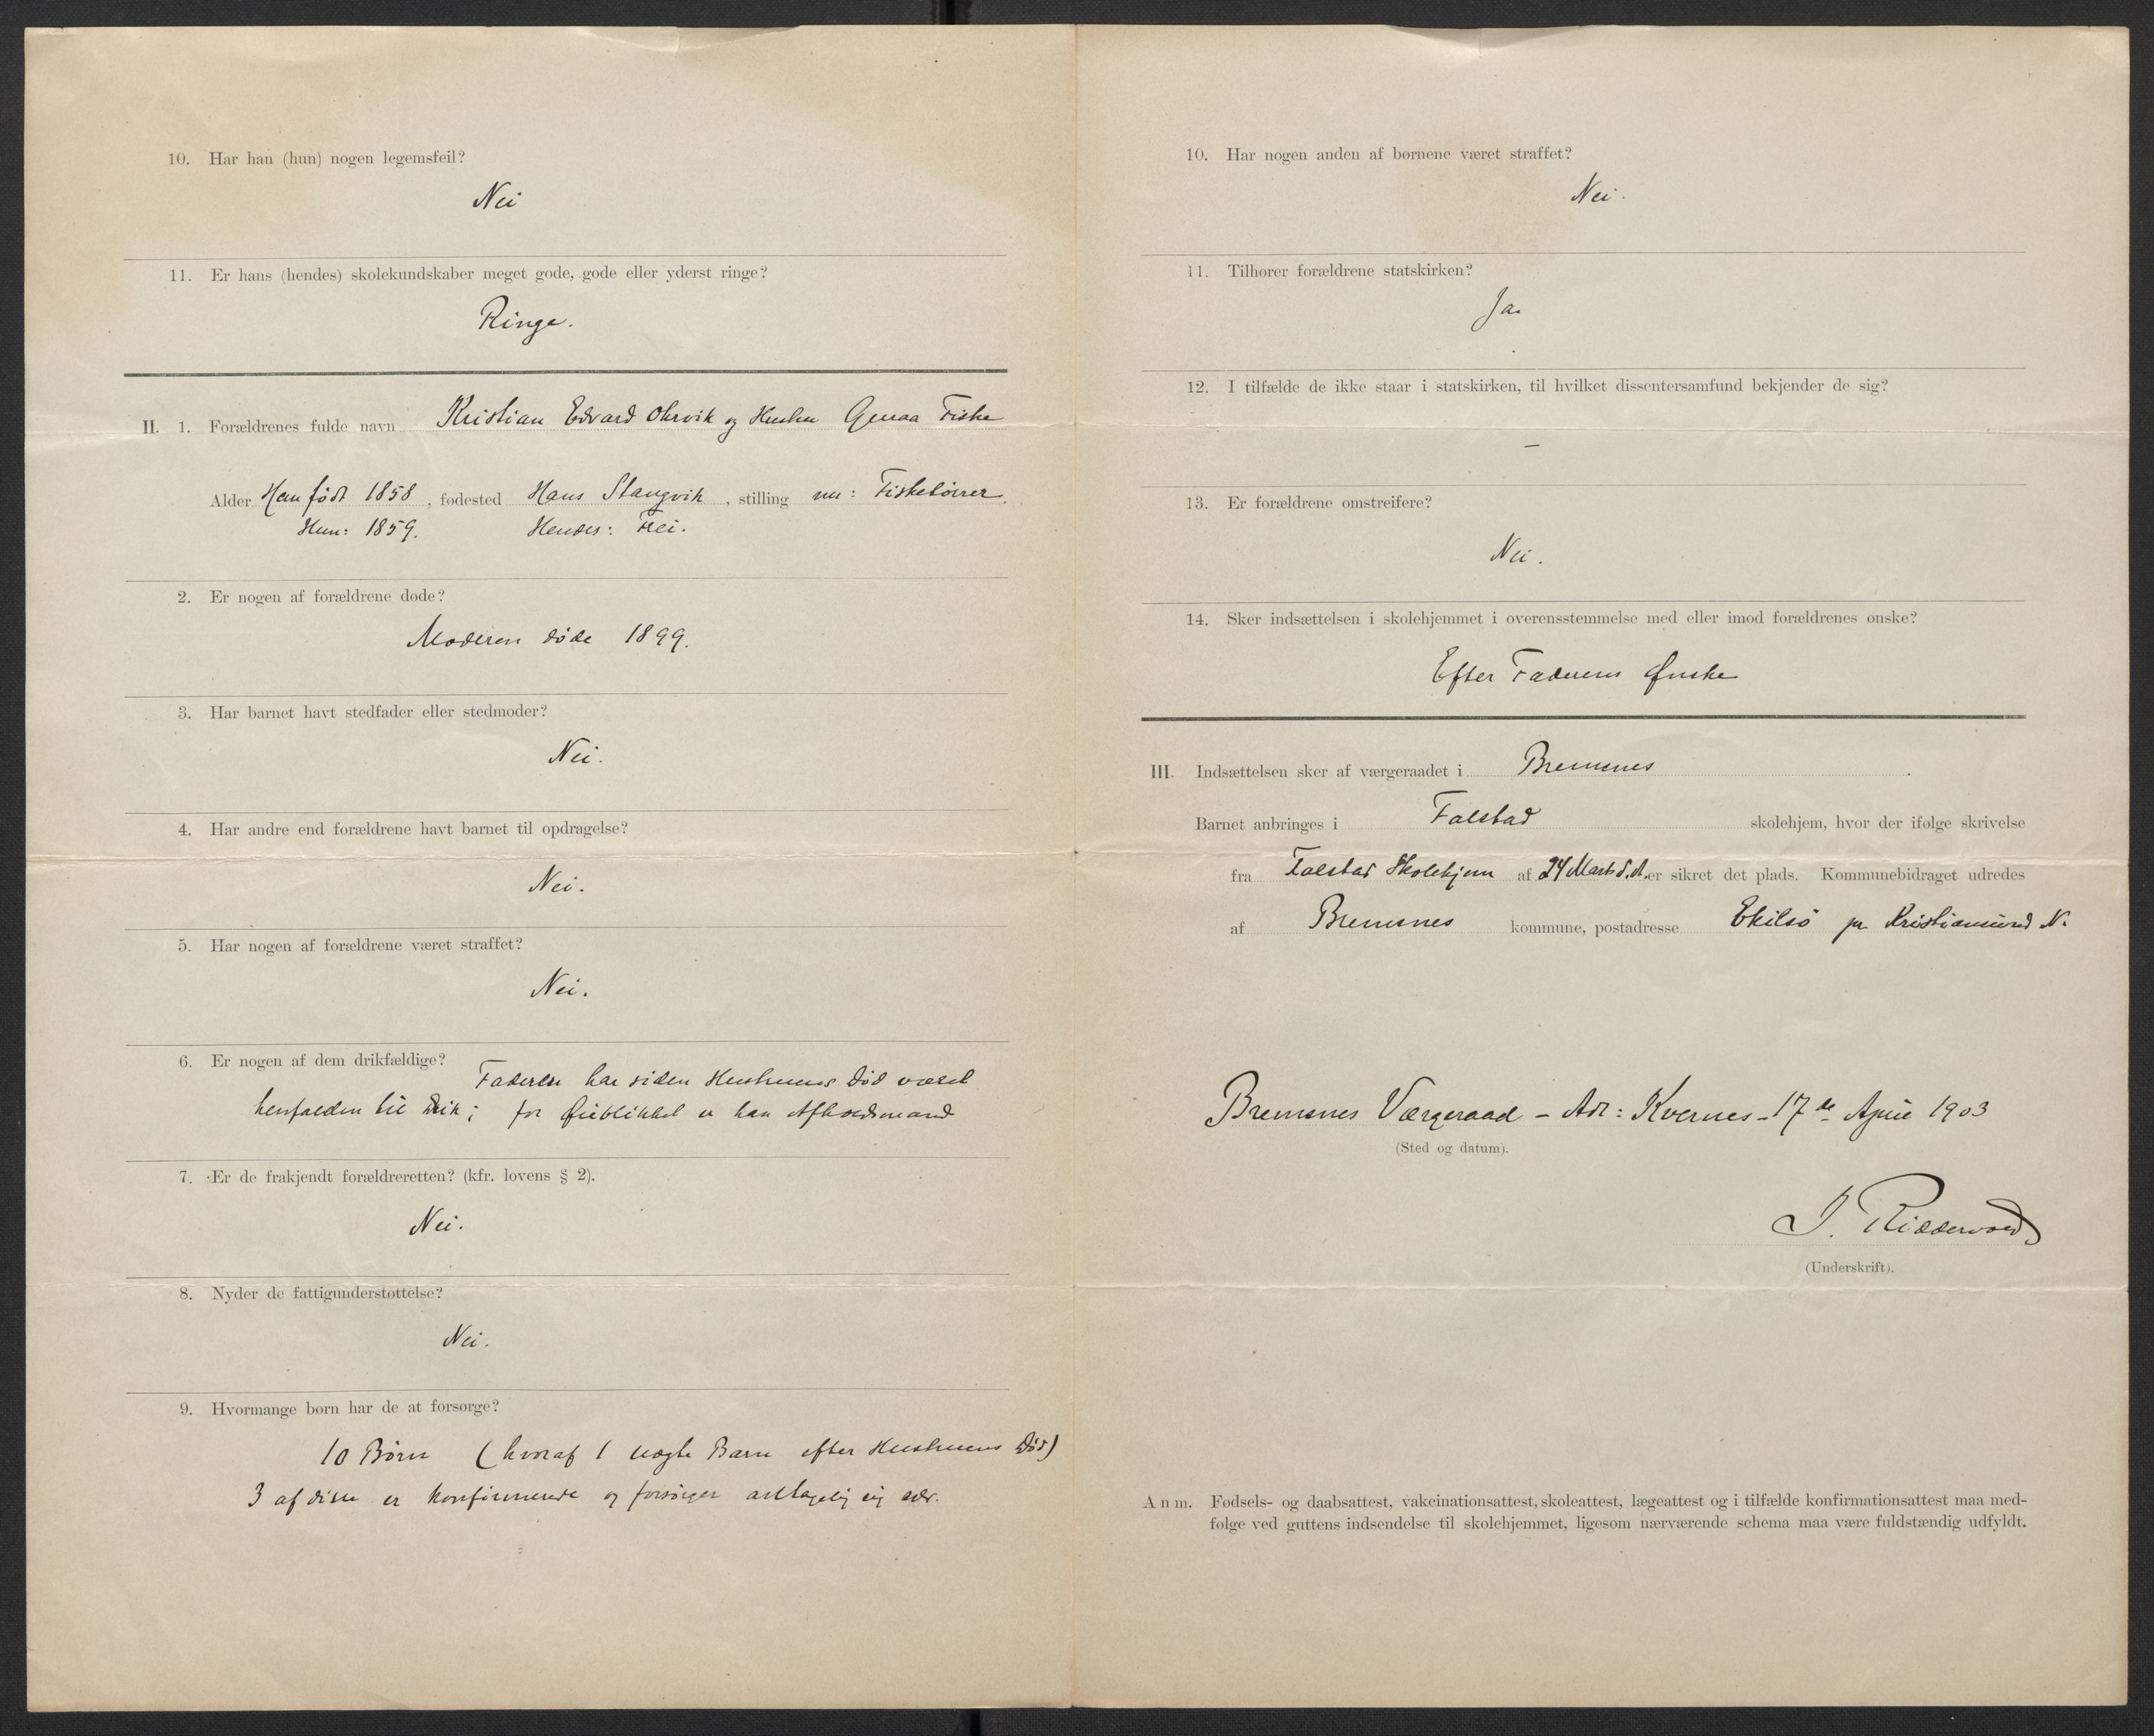 10. Har han (hun) nogen legemsfeil?
Nei
11. Er hans (hendes) skolekundskaber meget gode, gode eller yderst ringe?
Ringe.
II. 1. Forældrenes fulde navn Kristian Edvard Ohrvik og Hustru Fiske
Alder Han født 1858, fødested Hans Stangvik, stilling nu: Fisketørrer.
Hun: 1859. Hendes: Frei.
2. Er nogen af forældrene døde?
Moderen døde 1899.
3. Har barnet havt stedfader eller stedmoder?
Nei.
4. Har andre end forældrene havt barnet til opdragelse?
Nei.
5. Har nogen af forældrene været straffet?
Nei.
6. Er nogen af dem drikfældige?
Faderen har siden Hustruens Død været
henfalden til Drik; for Øieblikket er han Afholdsmand
7. Er de frakjendt forældreretten? (kfr. lovens § 2).
Nei.
8. Nyder de fattigunderstøttelse?
Nei.
9. Hvormange børn har de at forsørge?
10 Børn (hvoraf 1 uægte Barn efter Hustruens Død)
3 af disse er konfirmerede og forsørger antagelig sig selv.
10. Har nogen anden af børnene været straffet?
Nei.
11. Tilhører forældrene statskirken?
Ja.
12. I tilfælde de ikke staar i statskirken, til hvilket dissentersamfund bekjender de sig?
—
13. Er forældrene omstreifere?
Nei.
14. Sker indsættelsen i skolehjemmet i overensstemmelse med eller imod forældrenes ønske?
Efter Faderens Ønske
III. Indsættelsen sker af værgeraadet i Bremsnes
Barnet anbringes i Falstad skolehjem, hvor der ifølge skrivelse
fra Falstad Skolehjem af 24 Marts d.A. er sikret det plads. Kommunebidraget udredes
af Bremsnes kommune, postadresse Ekilsø pr Kristiansund N.
Bremsnes Værgeraad – Adr: Kvernes – 17de April 1903
(Sted og datum).
J. Ridderwold
(Underskrift).
Anm. Fødsels- og daabsattest, vakcinationsattest, skoleattest, lægeattest og i tilfælde konfirmationsattest maa med-
følge ved guttens indsendelse til skolehjemmet, ligesom nærværende schema maa være fuldstændig udfyldt.